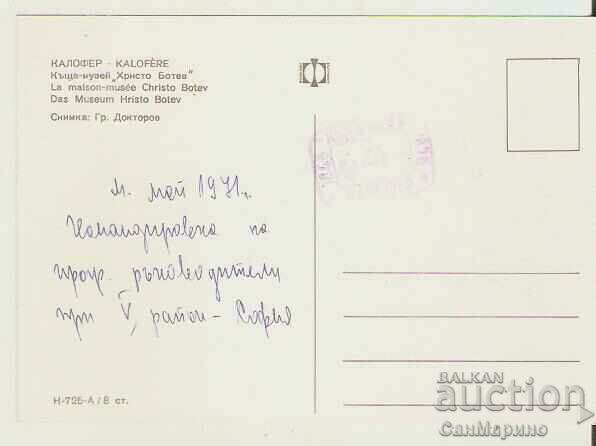 КАЛОФЕР - KALOFÈRE
Къща-музей „Христо Ботев"
La maison-musée Christo Botev
Das Museum Hristo Botev
Снимка: Гр. Докторов
м. май 1971 г.
Командировка на
проф. ръководители
при V район - София
Н-725-А / 8 ст.
BALKAN
auction
СанМарино